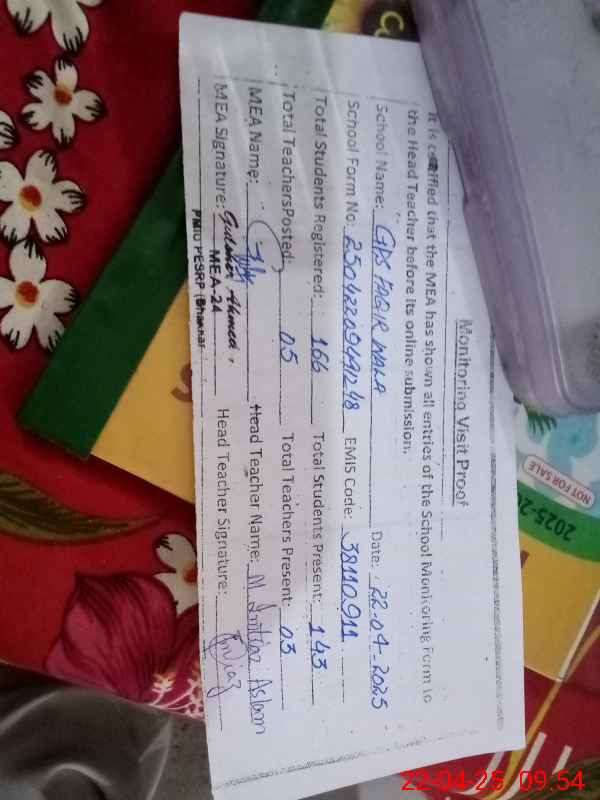 Monitoring Visit Proof
It is certified that the MEA has shown all entries of the School Monitoring Form to
the Head Teacher before its online submission.
School Name: GPS FAQIR WALA Date: 22-04-2025
School Form No: 25042209491248 EMIS Code: 38110911
Total Students Registered: 166 Total Students Present: 143
Total TeachersPosted: 05 Total Teachers Present: 03
MEA Name: Head Teacher Name: M Imtiaz Aslam
MEA Signature: Gulsher Ahmed Head Teacher Signature: Imtiaz
MEA-24
PMIU PESRP (Bhakkar
NOT FOR SALE
2025-26
22-04-25 09:54